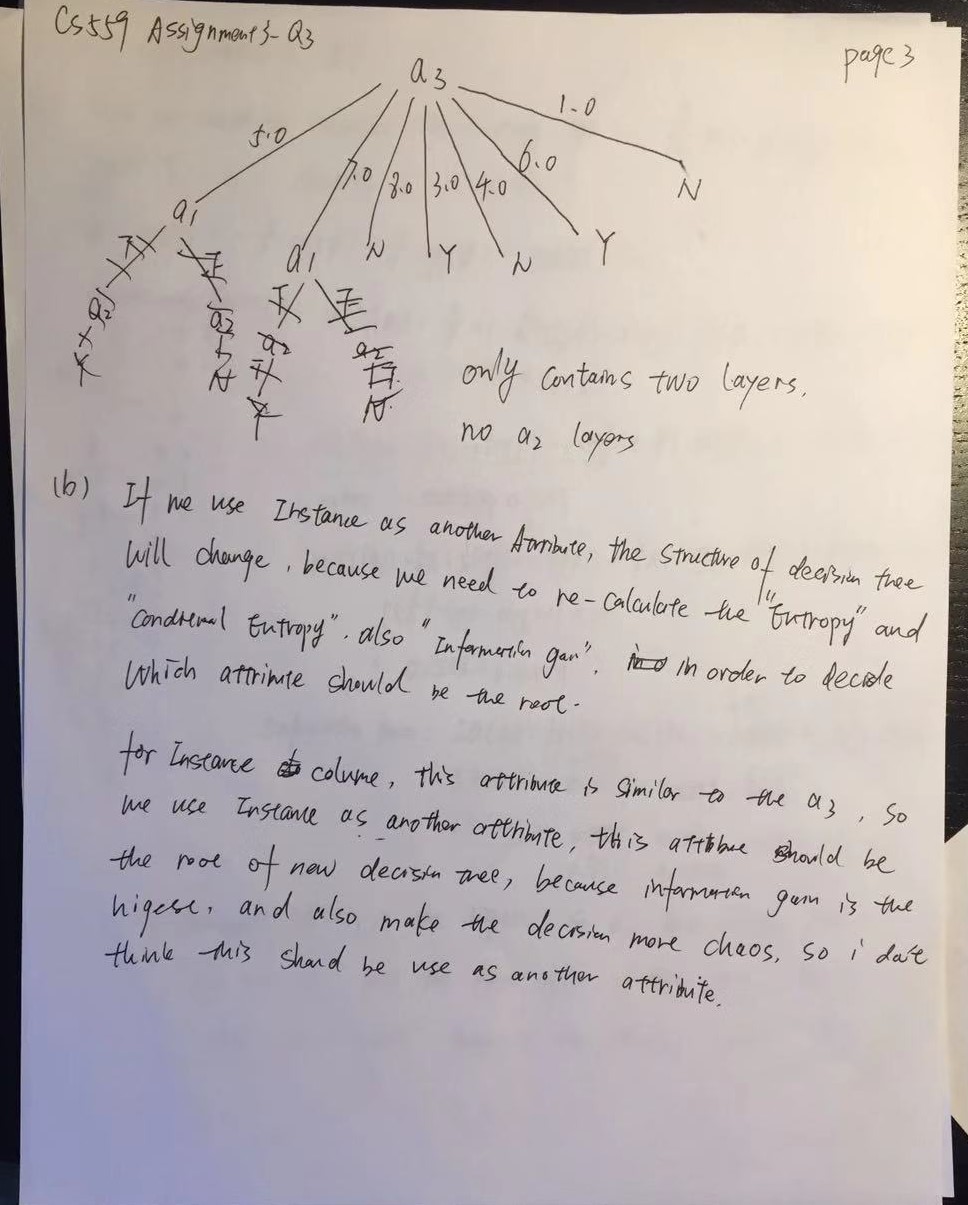 CS559 Assignment3-Q3
page 3
a3
5.0
7.0
8.0
3.0
4.0
6.0
1.0
a1
a1
N
Y
N
Y
N
T
F
a2
a2
N
T
F
a2
a2
N
only contains two layers,
no a2 layers
(b) If we use Instance as another Attribute, the structure of decision tree
will change, because we need to re-calculate the "Entropy" and
"Condtional Entropy". also "Information gan". in order to decide
Which attribute should be the root.
for Instance colume, this attribute is similar to the a3, so
we use Instance as another attribute, this attibue should be
the root of new decision tree, because information gain is the
higest, and also make the decision more chaos, so i don't
think this should be use as another attribute.